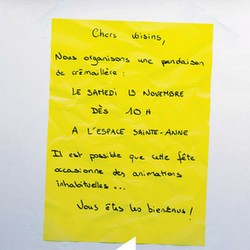 Chers voisins,
Nous organisons une pendaison
de crémaillère :
LE SAMEDI 19 NOVEMBRE
DÈS 10 H
A L'ESPACE SAINTE-ANNE
Il est possible que cette fête
occasionne des animations
inhabituelles ...
Vous êtes les bienvenus !